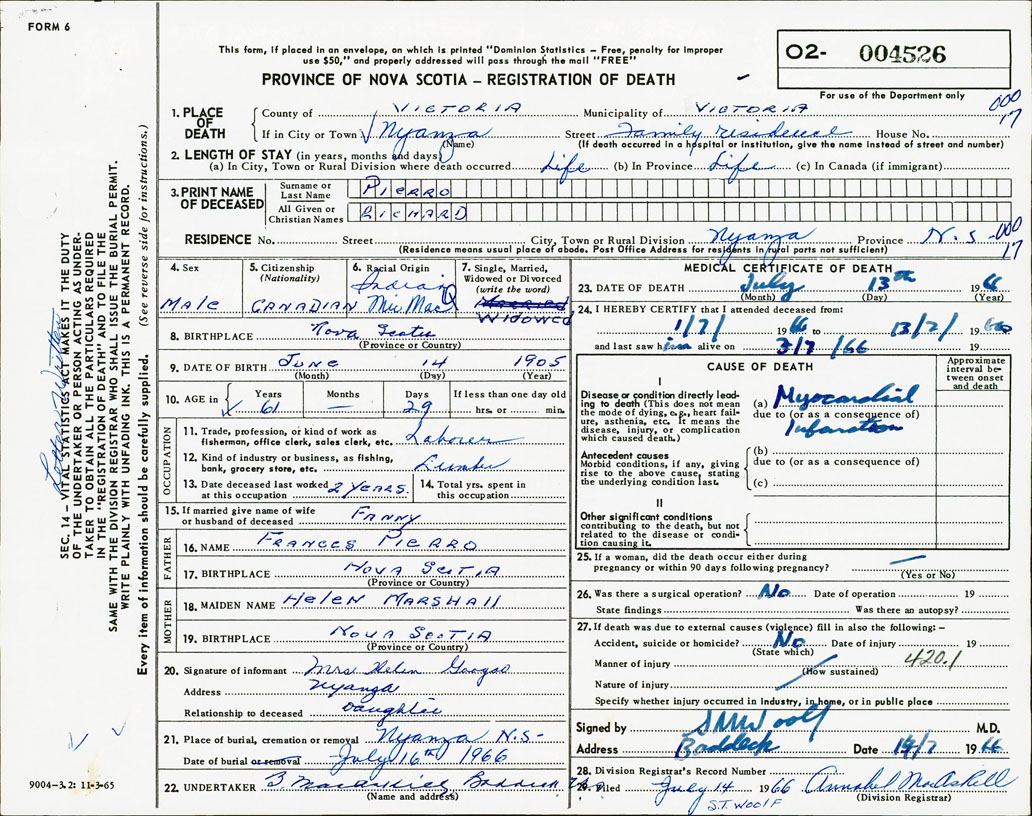 FORM 6
This form, if placed in an envelope, on which is printed "Dominion Statistics – Free, penalty for improper
use $50," and properly addressed will pass through the mail "FREE"
PROVINCE OF NOVA SCOTIA – REGISTRATION OF DEATH
O2- 004526
For use of the Department only
000
17
1. PLACE OF DEATH
County of VICTORIA Municipality of VICTORIA
If in City or Town Nyanza Street Family residence House No.
(Name) (If death occurred in a hospital or institution, give the name instead of street and number)
2. LENGTH OF STAY (in years, months and days)
(a) In City, Town or Rural Division where death occurred Life (b) In Province Life (c) In Canada (if immigrant)
3. PRINT NAME OF DECEASED
Surname or Last Name PIERRO
All Given or Christian Names RICHARD
RESIDENCE No. Street City, Town or Rural Division Nyanza Province N.S - 000
17
(Residence means usual place of abode. Post Office Address for residents in rural parts not sufficient)
4. Sex
MALE
5. Citizenship
(Nationality)
CANADIAN
6. Racial Origin
Indian
Mic Mac
7. Single, Married,
Widowed or Divorced
(write the word)
Married
WIDOWED
8. BIRTHPLACE Nova Scotia
(Province or Country)
9. DATE OF BIRTH JUNE 14 1905
(Month) (Day) (Year)
10. AGE in Years Months Days If less than one day old
61 — 29 hrs. or min.
OCCUPATION
11. Trade, profession, or kind of work as
fisherman, office clerk, sales clerk, etc. Laborer
12. Kind of industry or business, as fishing,
bank, grocery store, etc. Lumber
13. Date deceased last worked
at this occupation 2 YEARS.
14. Total yrs. spent in
this occupation
15. If married give name of wife
or husband of deceased FANNY
FATHER
16. NAME FRANCES PIERRO
17. BIRTHPLACE NOVA SCOTIA
(Province or Country)
MOTHER
18. MAIDEN NAME HELEN MARSHALL
19. BIRTHPLACE NOVA SCOTIA
(Province or Country)
20. Signature of informant Mrs Helen Googoo
Address Nyanza
Relationship to deceased Daughter
21. Place of burial, cremation or removal Nyanza N.S-
Date of burial or removal July 16th 1966
22. UNDERTAKER Baddeck
(Name and address)
MEDICAL CERTIFICATE OF DEATH
23. DATE OF DEATH July 13th 1966
(Month) (Day) (Year)
24. I HEREBY CERTIFY that I attended deceased from:
1/7/ 1966 to 13/7/ 1966
and last saw him alive on 3/7/66 19
CAUSE OF DEATH
Approximate interval between onset and death
I
Disease or condition directly leading
to death (This does not mean
the mode of dying, e.g., heart failure,
asthenia, etc. It means the
disease, injury, or complication
which caused death.)
(a) Myocardial
due to (or as a consequence of)
Infarction
Antecedent causes
Morbid conditions, if any, giving
rise to the above cause, stating
the underlying condition last.
(b)
due to (or as a consequence of)
(c)
II
Other significant conditions
contributing to the death, but not
related to the disease or condition
causing it.
25. If a woman, did the death occur either during
pregnancy or within 90 days following pregnancy? —
(Yes or No)
26. Was there a surgical operation? No Date of operation 19
State findings Was there an autopsy?
27. If death was due to external causes (violence) fill in also the following: –
Accident, suicide or homicide? No Date of injury 19
(State which)
Manner of injury 420.1
(How sustained)
Nature of injury
Specify whether injury occurred in industry, in home, or in public place
Signed by S M Woolf M.D.
Address Baddeck Date 14/7 1966
28. Division Registrar's Record Number
29. Filed July 14 1966 Annabel MacAskill
S.T. WOOLF (Division Registrar)
SEC. 14 – VITAL STATISTICS ACT MAKES IT THE DUTY
OF THE UNDERTAKER OR PERSON ACTING AS UNDER-
TAKER TO OBTAIN ALL THE PARTICULARS REQUIRED
IN THE "REGISTRATION OF DEATH" AND TO FILE THE
SAME WITH THE DIVISION REGISTRAR WHO SHALL ISSUE THE BURIAL PERMIT.
WRITE PLAINLY WITH UNFADING INK. THIS IS A PERMANENT RECORD.
Every item of information should be carefully supplied. (See reverse side for instructions.)
9004-3.2: 11-3-65